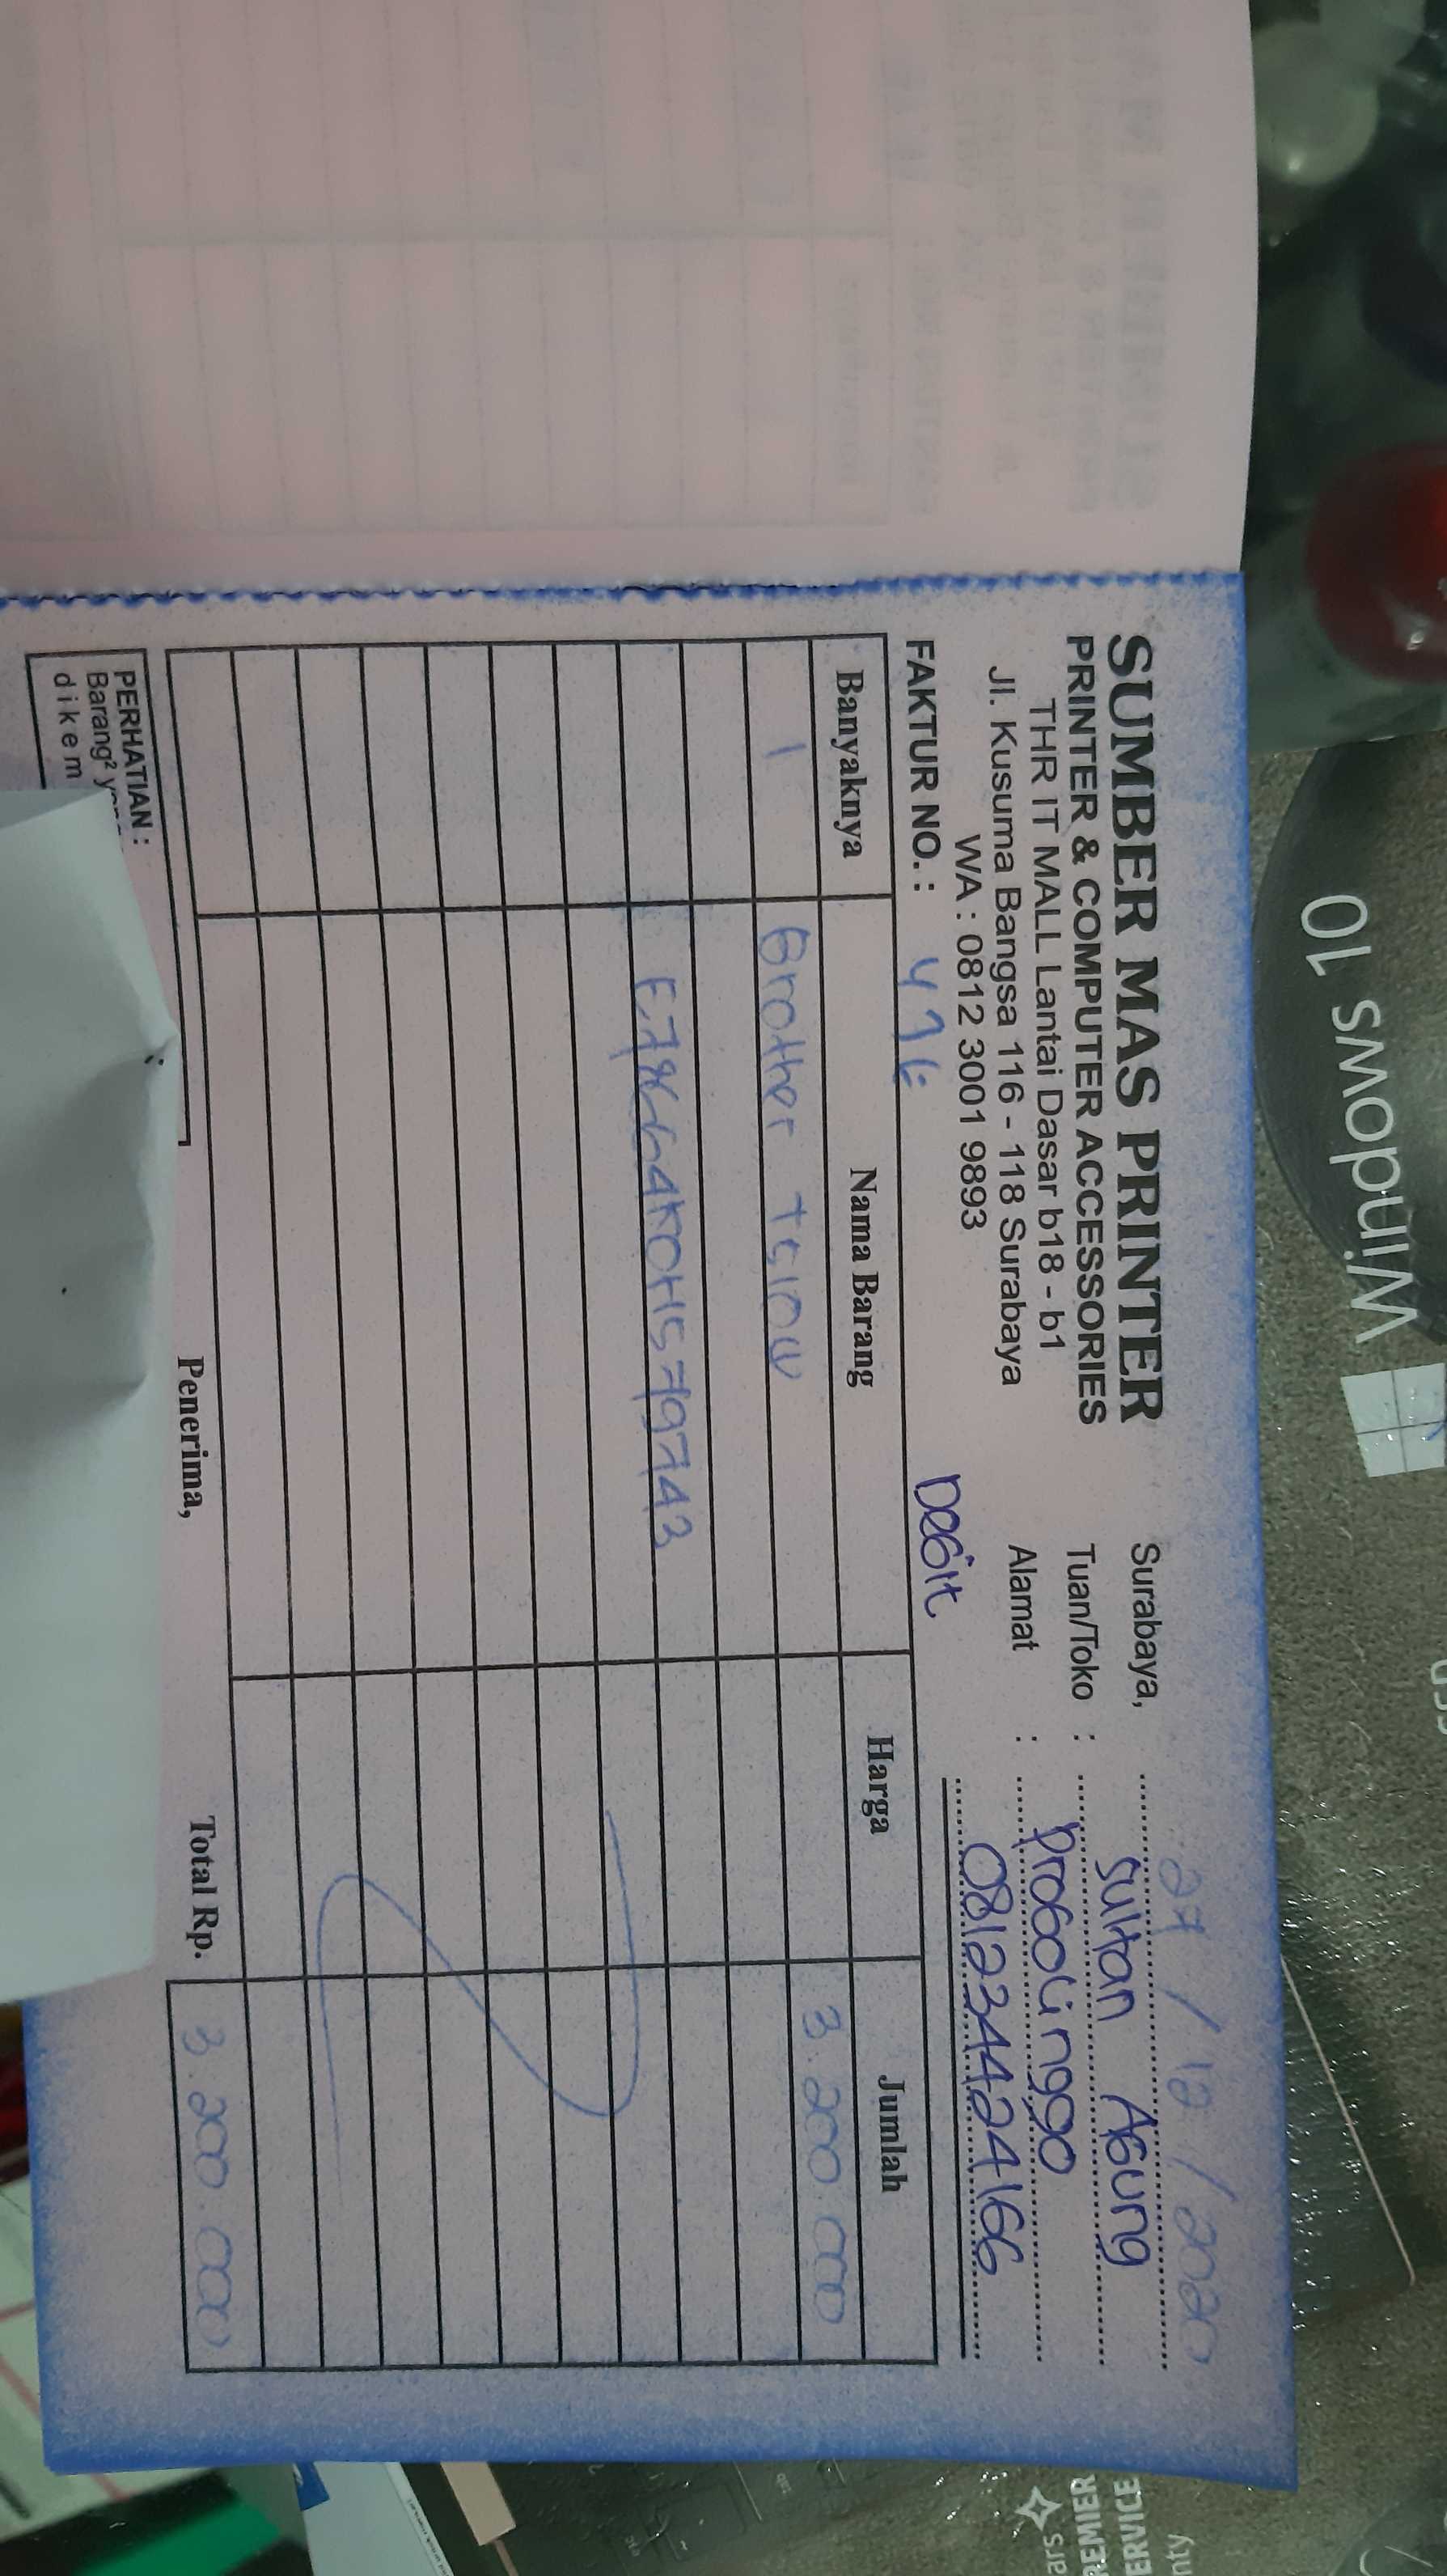 SUMBER MAS PRINTER
PRINTER & COMPUTER ACCESSORIES
THR IT MALL Lantai Dasar b18 - b1
Jl. Kusuma Bangsa 116 - 118 Surabaya
WA : 0812 3001 9893
Surabaya, 27 / 12 / 2020
Tuan/Toko : Sultan Agung
Alamat : Probolinggo
081234424166
FAKTUR NO. :
Debit
Banyaknya Nama Barang Harga Jumlah
1 Brother 3.200.000
Penerima, Total Rp. 3.200.000
PERHATIAN :
Barang²
dikem
Windows 10